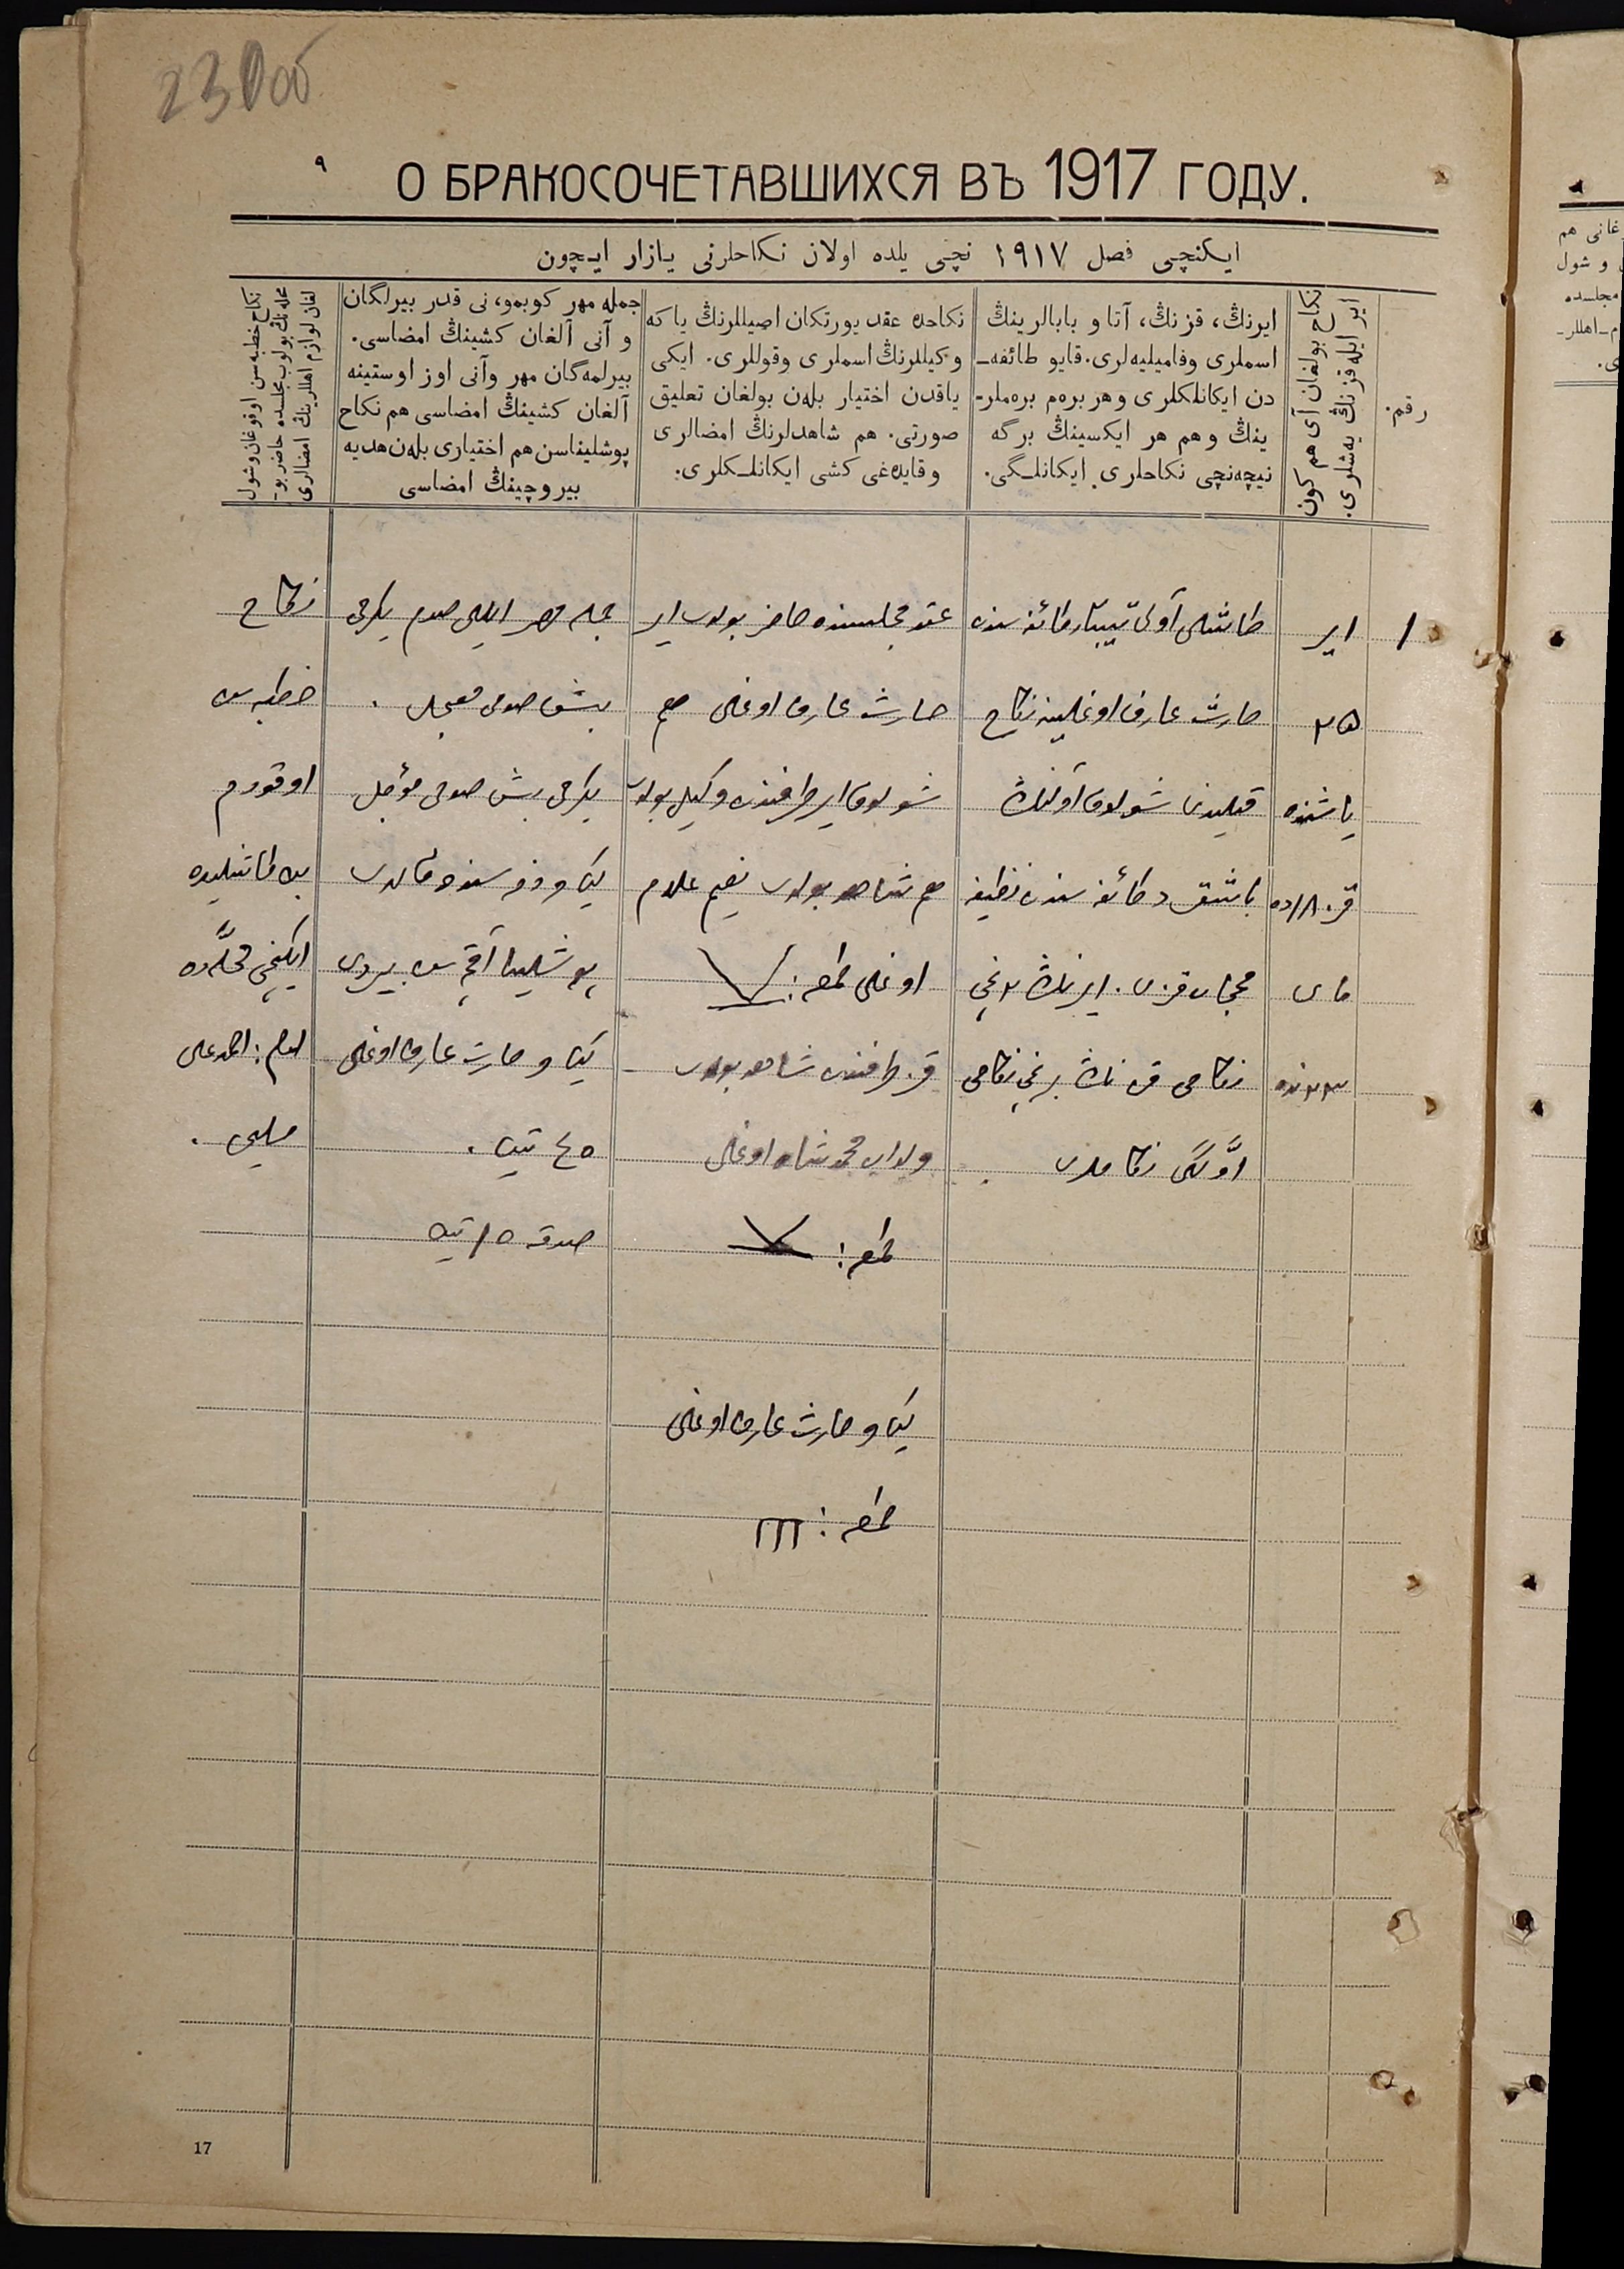 23об
٩
О БРАКОСОЧЕТАВШИХСЯ ВЪ 1917 ГОДУ.
ایکنچی فصل ١٩١٧ نچی یلده اولان نکاحلرنی یازار ایچون
رقم.
نکاح بولغان آی هم کون
ایر ایله قزنڭ یهشلری.
ایرنڭ، قزنڭ، آتا و بابالرینڭ
اسملری وفامیلیه‌لری. قایو طائفه‌ـ
دن ایکانلکلری وهر بره‌م بره‌ملرـ
ینڭ وهم هر ایکسینڭ برگه
نیچه‌نچی نکاحلری ایکانلـگی.
نکاحده عقد یورتکان اصیللرنڭ یا که
وکیللرنڭ اسملری وقوللری. ایکی
یاقدن اختیار بله‌ن بولغان تعلیق
صورتی. هم شاهدلرنڭ امضالری
وقایده‌غی کشی ایکانلـکلری.
جمله مهر کوبمو، نی قدر بیرلگان
و آنی آلغان کشینڭ امضاسی.
بیرلمه‌گان مهر وآنی اوز اوستینه
آلغان کشینڭ امضاسی هم نکاح
پوشلیناسن هم اختیاری بله‌ن هدیه
بیروچینڭ امضاسی
نکاح خطبه‌سن اوقوغان وشول
محله‌نڭ بولوب مجلسده حاضر بوـ
لغان لوازم اهللرینڭ امضالری
١
ایر
٢٥
یاشنده
قز ١٨ده
مای
٢٣نده
طاشلی آولی تیبتار طائفه سندن
حارث عارف اوغلینه نکاح
قیلیندی شولوق آولنڭ
باشقرد طائفه سندن نظیفه
قزی. ایرنڭ ٢نچی
نکاحی قزنڭ برنچی نکاحی
اوّلگی نکاحلری
عقد مجلسنده حاضر بولدی ایر
حارث عارف اوغلی هم
شولوق ایر طرفندن وکیل بولوب
هم شاهد بولدی نعیم علام
اوغلی طمغه:
قز طرفندن شاهد بولدی
محمدشاه اوغلی
طمغه:
کیاو حارث عارف اوغلی
طمغه:
جمله مهر ایللی صوم یگرمی
بیش صومی معجل.
یگرمی بیش صومی مؤجل
کیاو ذمه سنده قالدی
پوشلینا آقچه سن بیردی
کیاو حارث عارف اوغلی
٤٥ تین.
صدقه ١٥ تین
نکاح
خطبه سن
اوقودم
طاشلیده
ایکنچی محلّه‌ده
امام: احمدعلی
17
غانی هم
و شول
مجلسده